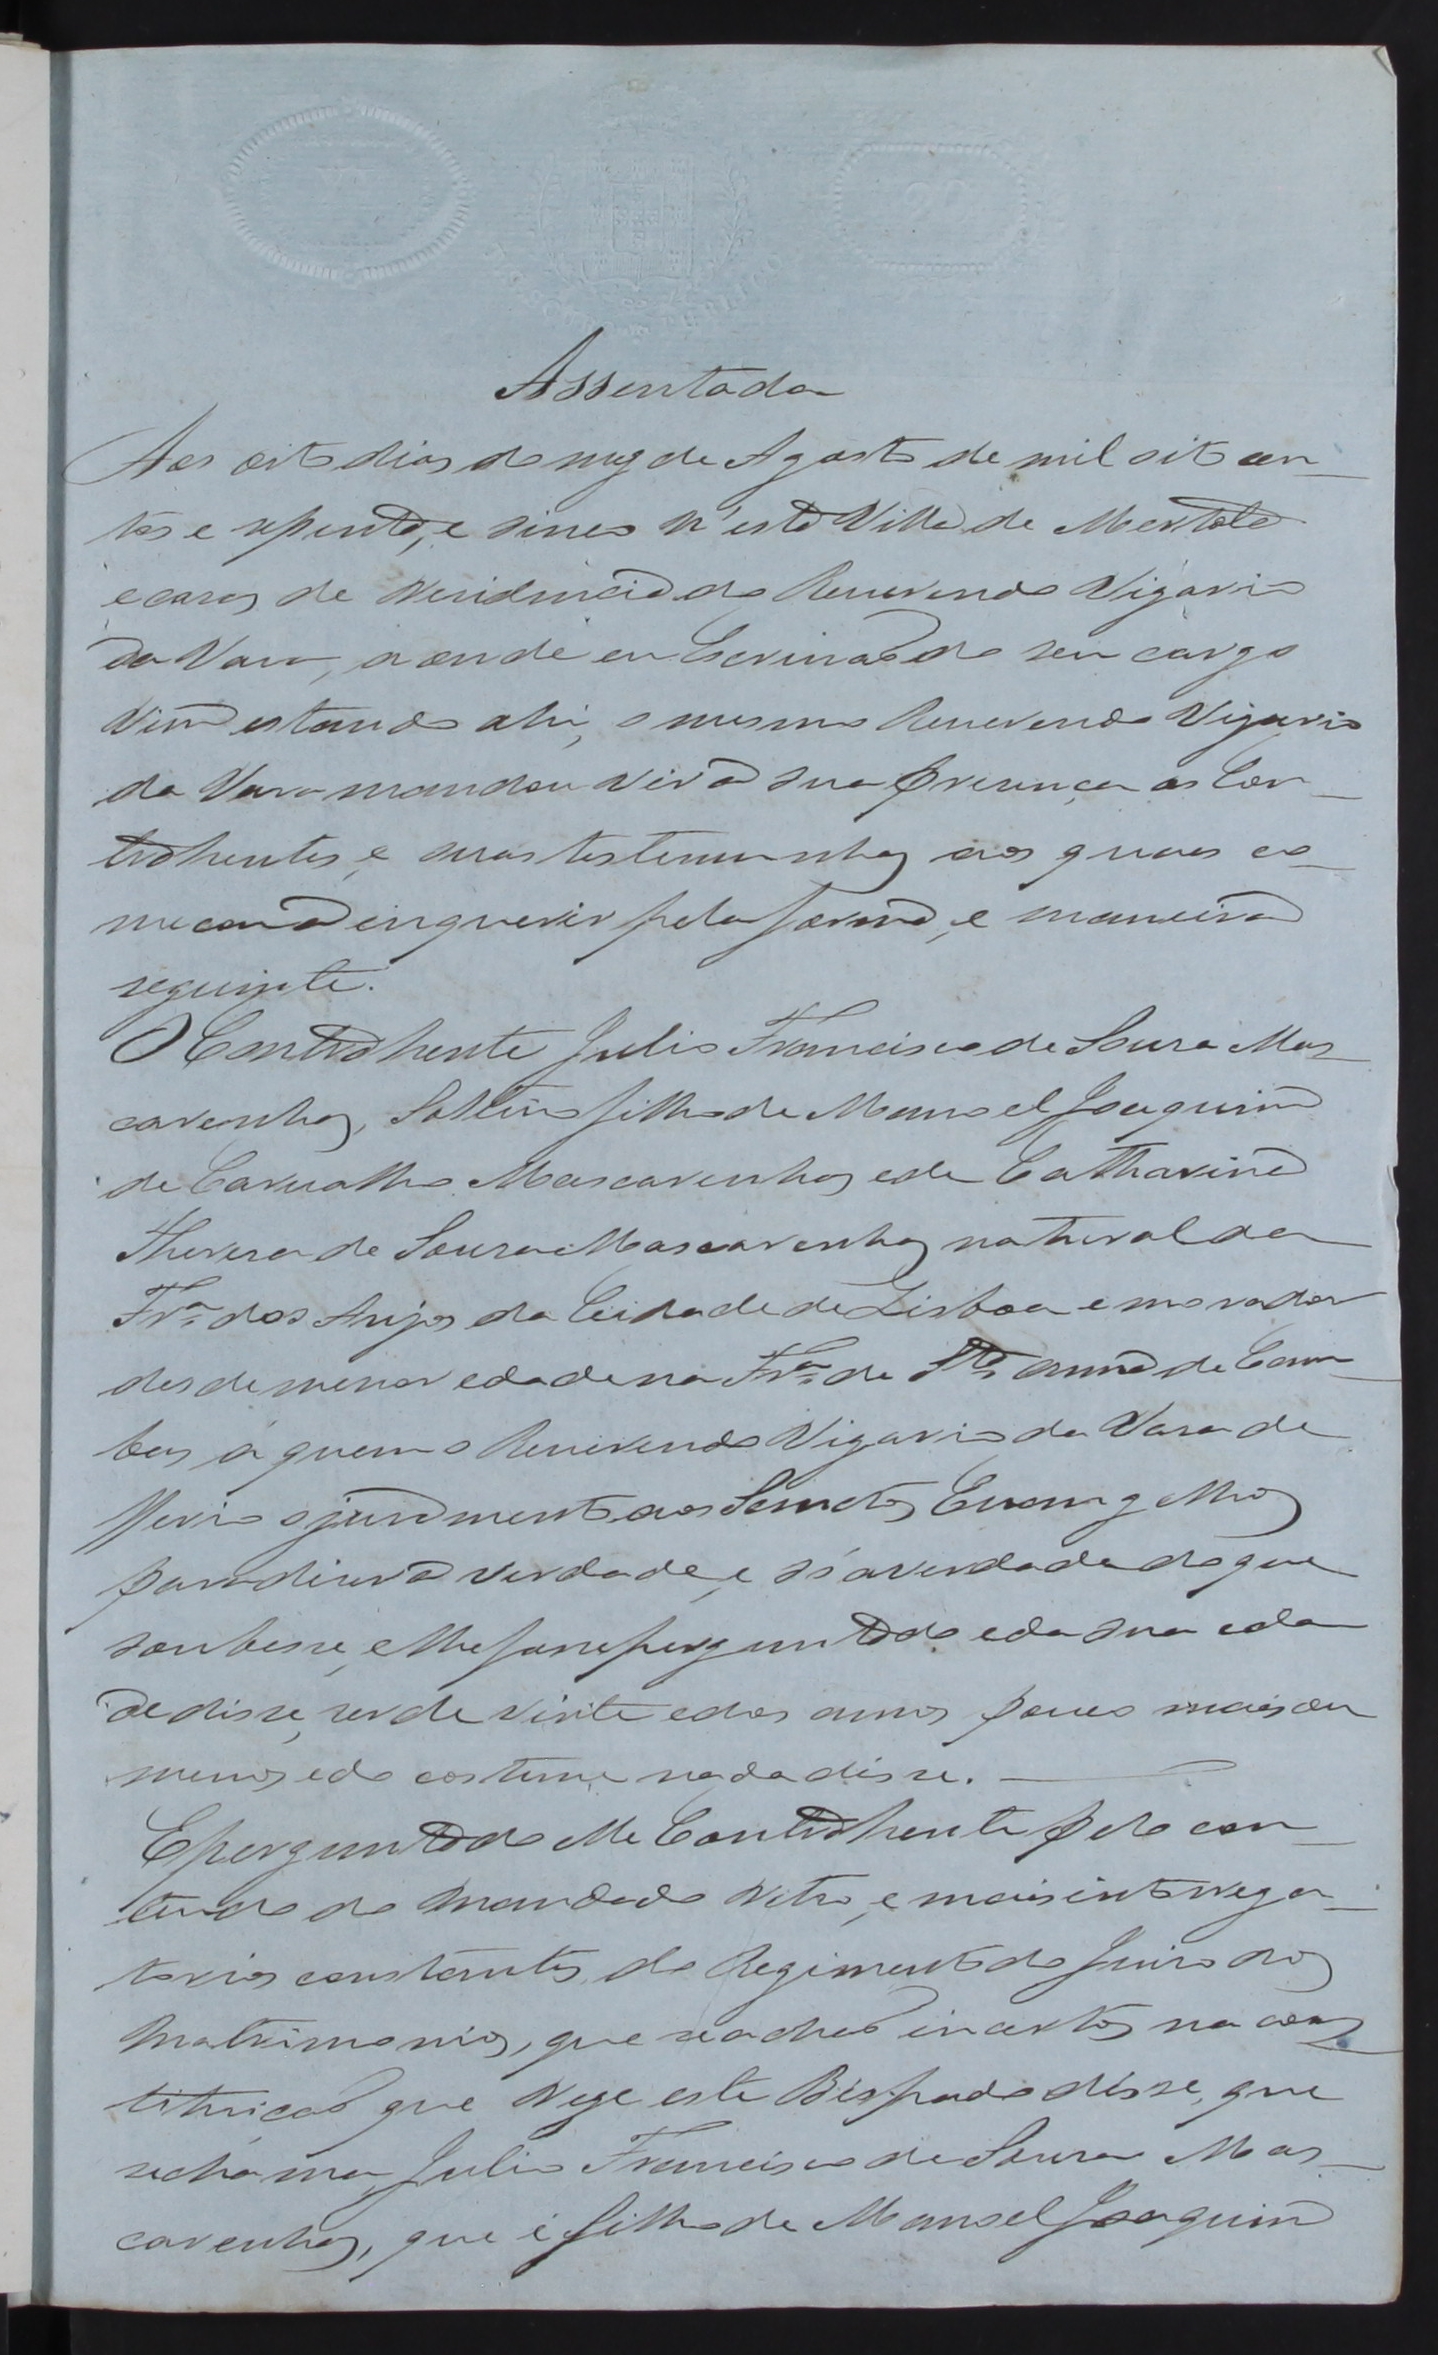 Assentada
Aos oito dias do mez de Agosto de mil oito cen-
tos e sepenta, e sinco n'esta Villa de Mertola
e casas de Residencia do Reverendo Vigario
da Vara, a onde eu Escrivaõ do seu cargo
vim estando ahi, o mesmo Reverendo Vigario
da Vara mandou vir á sua prezença os Con-
trahentes, e suas testemunhas aos quaes co-
mecou a inquerir pela forma, e maneira
seguinte.
O Contrahente Julio Francisco de Sousa Mas-
carenhas, Solteiro filho de Manoel Joaquim
de Carvalho Mascarenhas e de Catharina
Thereza de Sousa Mascarenhas natural da
Frª. dos Anjos da Cidade de Lisboa e morador
desde menor edade na Frª. de Stª. Anna de Cam-
bas á quem o Reverendo Vigario da Vara de
fferio o juramento aos Sanctos Evangelhos
para dizer a verdade, e só a verdade do que
soubesse, e lhe fosse perguntado e da sua eda
de disse, ser de vinte e dos annos pouco mais ou
menos e do costume nada disse.
E perguntado elle Contrahente pelo con-
teudo do Mandado retro, e mais interroga-
torios constantes do Regimento do Juizo dos
Matrimonios, que se achaõ incertos na cons
tituiçaõ que Rege este Bispado disse, que
se chama Julio Francisco de Sousa Mas-
carenhas, que é filho de Manoel Joaquim